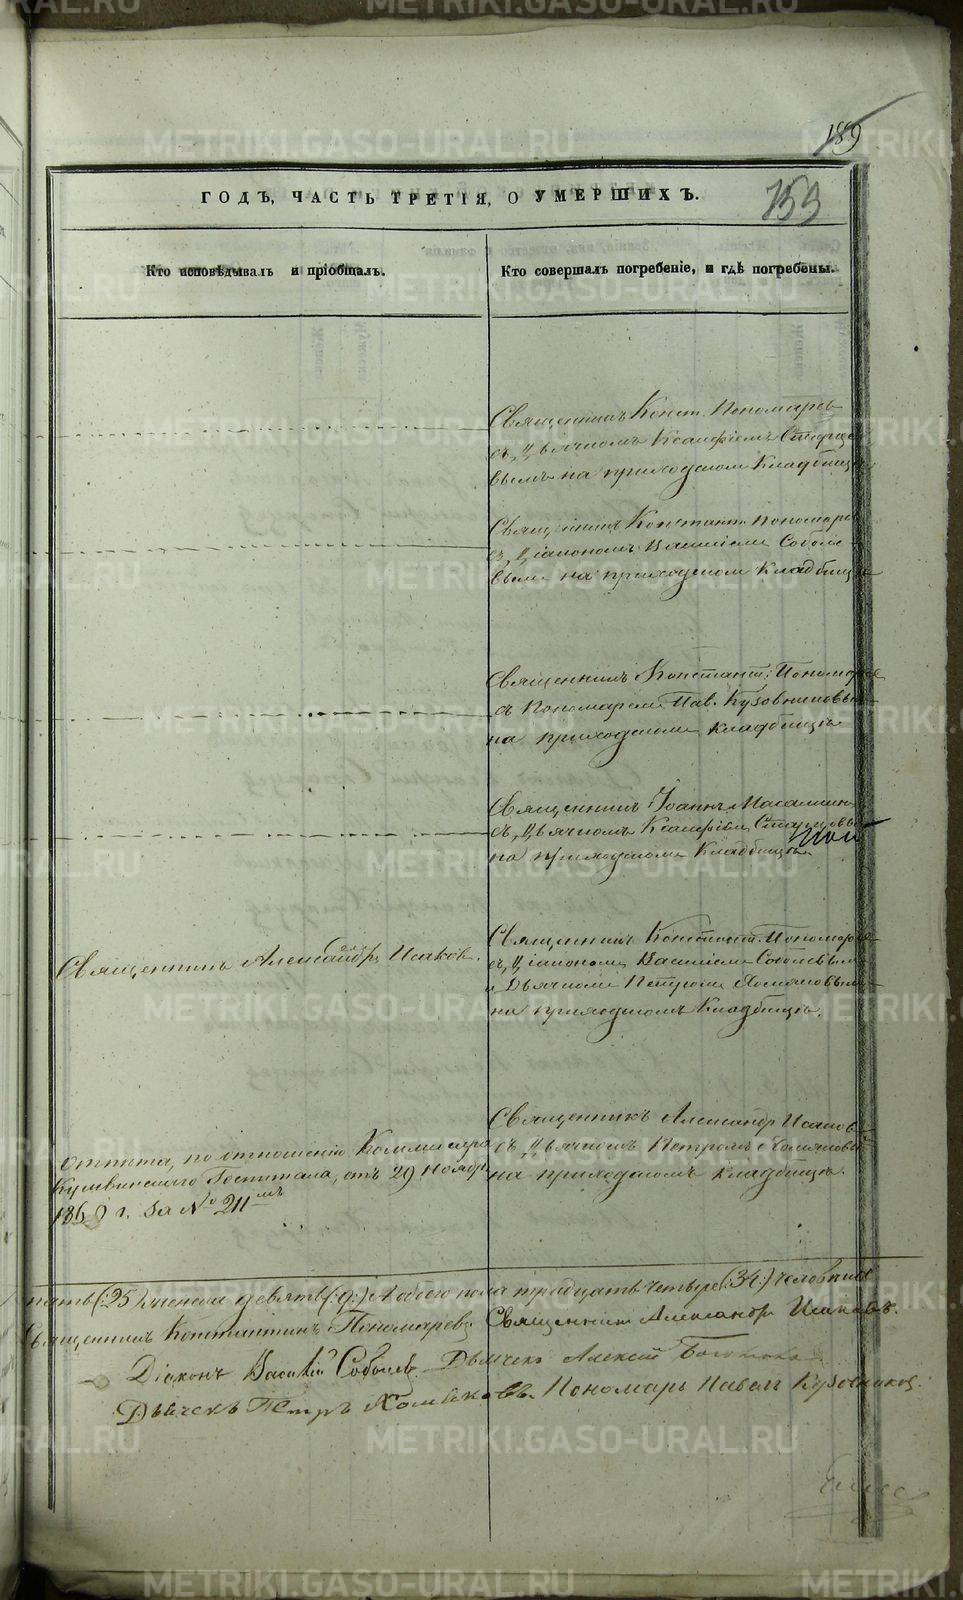 189
153
ГОДЪ, ЧАСТЬ ТРЕТІЯ, О УМЕРШИХЪ.
Кто исповѣдывалъ и пріобщалъ.
Кто совершалъ погребеніе, и гдѣ погребены.
Священникъ Конст. Пономарев
съ Дьячкомъ Ксанфіемъ Старце
вымъ на приходскомъ Кладбищѣ
Священникъ Констант. Пономарев
съ Діакономъ Василіемъ Соболе
вымъ на приходскомъ Кладбищѣ
Священникъ Констант. Пономарев
съ Пономаремъ Пав. Кузовниковым
на приходскомъ кладбищѣ
Священникъ Іоаннъ
съ Дьячкомъ Ксанфіем Старцовы
на приходскомъ Кладбищѣ
Священникъ Александръ Исаков.
Священникъ Констант. Пономарев
съ Діакономъ Василіемъ Соболевым
и Дьячкомъ Петромъ Хомяковым
на приходскомъ Кладбищѣ.
Отпѣта, по отношенію Коммисара
Кушвинскаго Госпитала, отъ 29 Ноябр.
186 г. за № 211мъ
Священникъ Александр Исаков
съ Дьячкомъ Петромъ Хомяковы
на приходскомъ кладбищѣ.
пять (:25) женска девять (:9:) А обоего пола тридцать четыре (:34:) человѣка
Священникъ Константинъ Пономаревъ. Священникъ Александръ Исаковъ.
Діаконъ Василій Соболевъ Дьячекъ Алексій
Дьячекъ Петръ Хомяковъ. Пономарь Павелъ Кузовников.